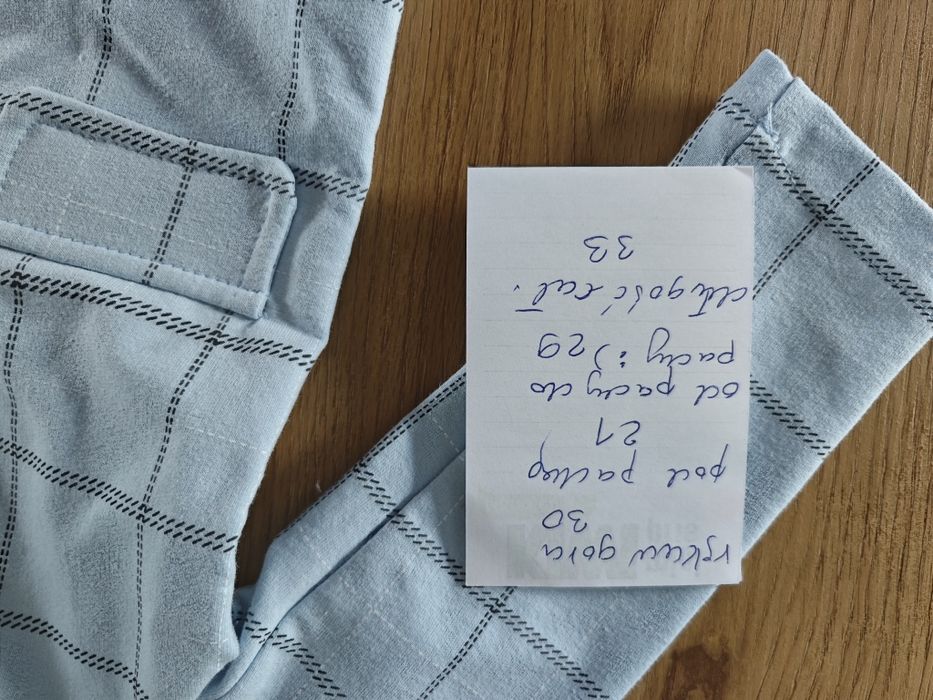 rękaw góra
30
pod pachą
21
od pachy do
pachy :) 29
długość cał.
33